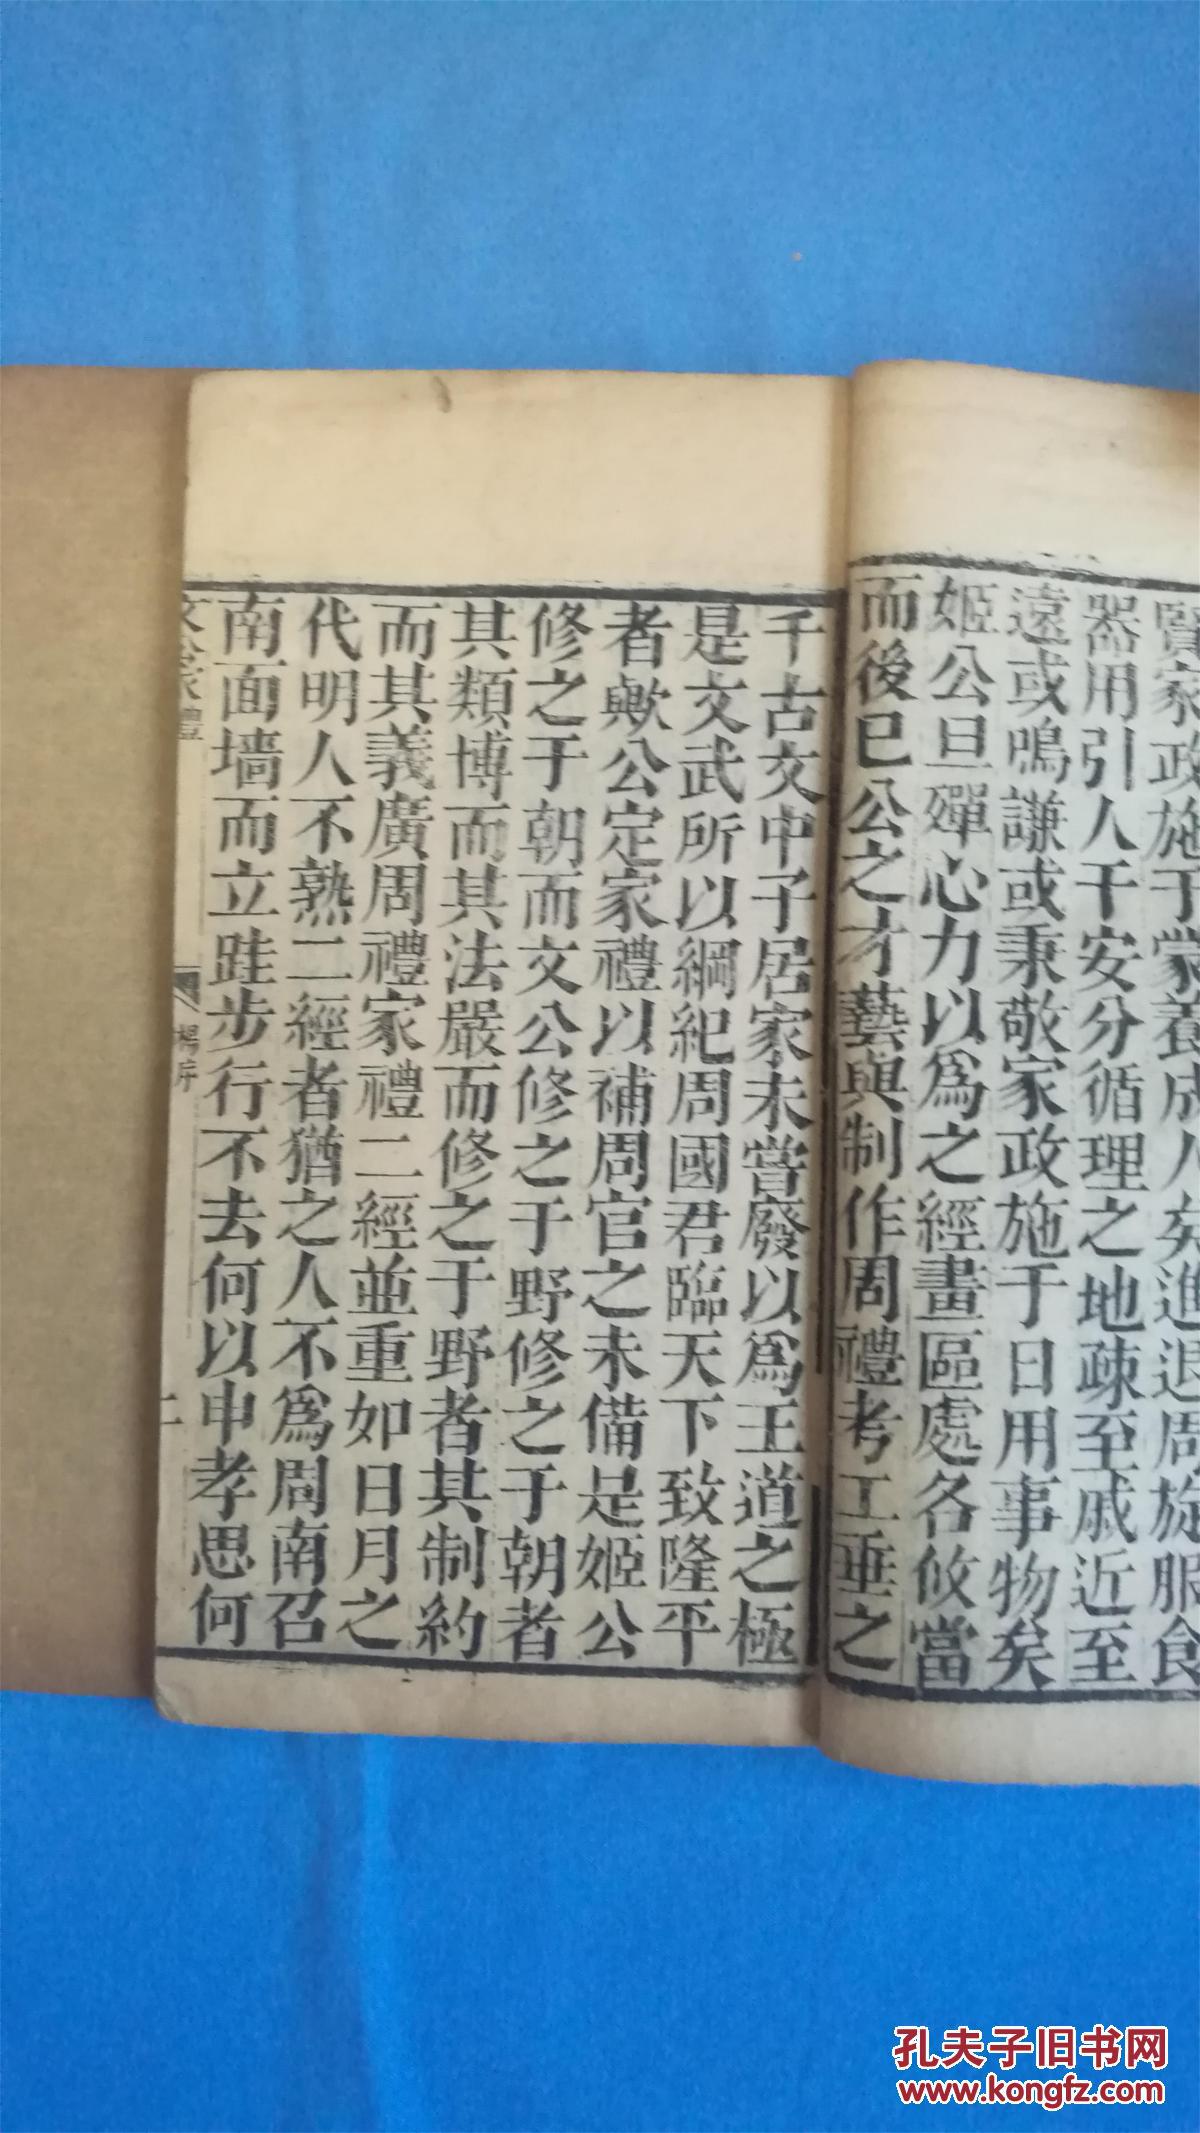 賢家政施于蒙養成人矣進退周旋服食
器用引人于安分循理之地疎至戚近至
遠或鳴謙或秉敬家政施于日用事物矣
姬公旦殫心力以為之經畫區處各攸當
而後已公之才藝與制作周禮考工垂之
千古文中子居家未嘗廢以為王道之極
是文武所以綱紀周國君臨天下致隆平
者歟公定家禮以補周官之未備是姬公
修之于朝而文公修之于野修之于朝者
其類博而其法嚴而修之于野者其制約
而其義廣周禮家禮二經並重如日月之
代明人不熟二經者猶之人不為周南召
南面墻而立跬步行不去何以申孝思何
文公家禮 楊序 二
孔夫子旧书网
www.kongfz.com